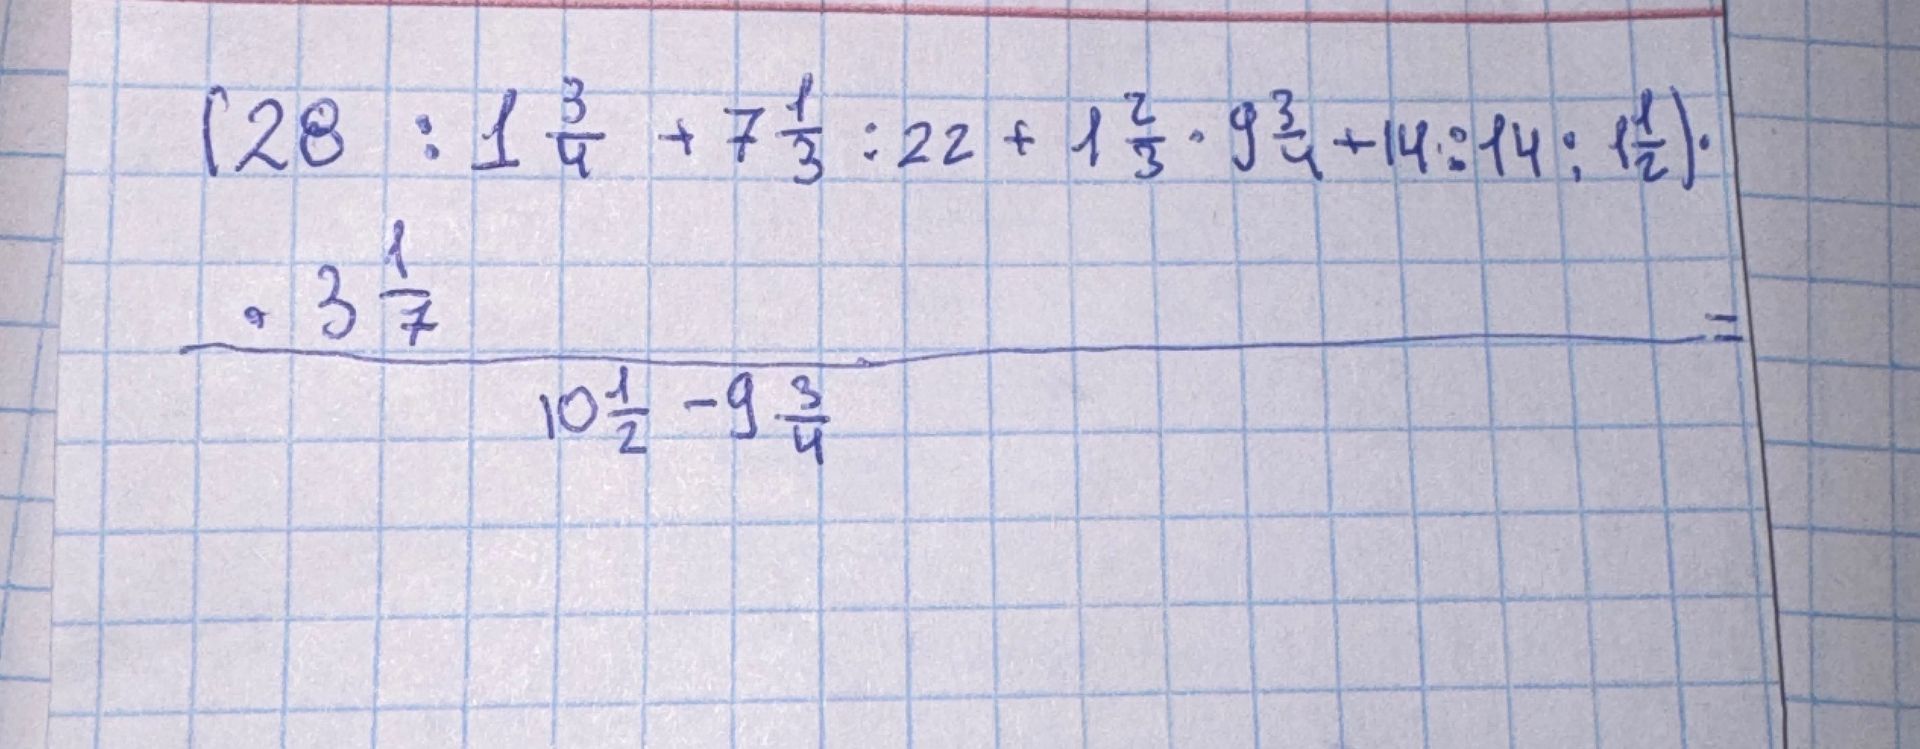 (28 : 1 3/4 + 7 1/3 : 22 + 1 2/3 · 9 3/4 + 14 : 14 : 1 1/2) ·
· 3 1/7
=
10 1/2 - 9 3/4